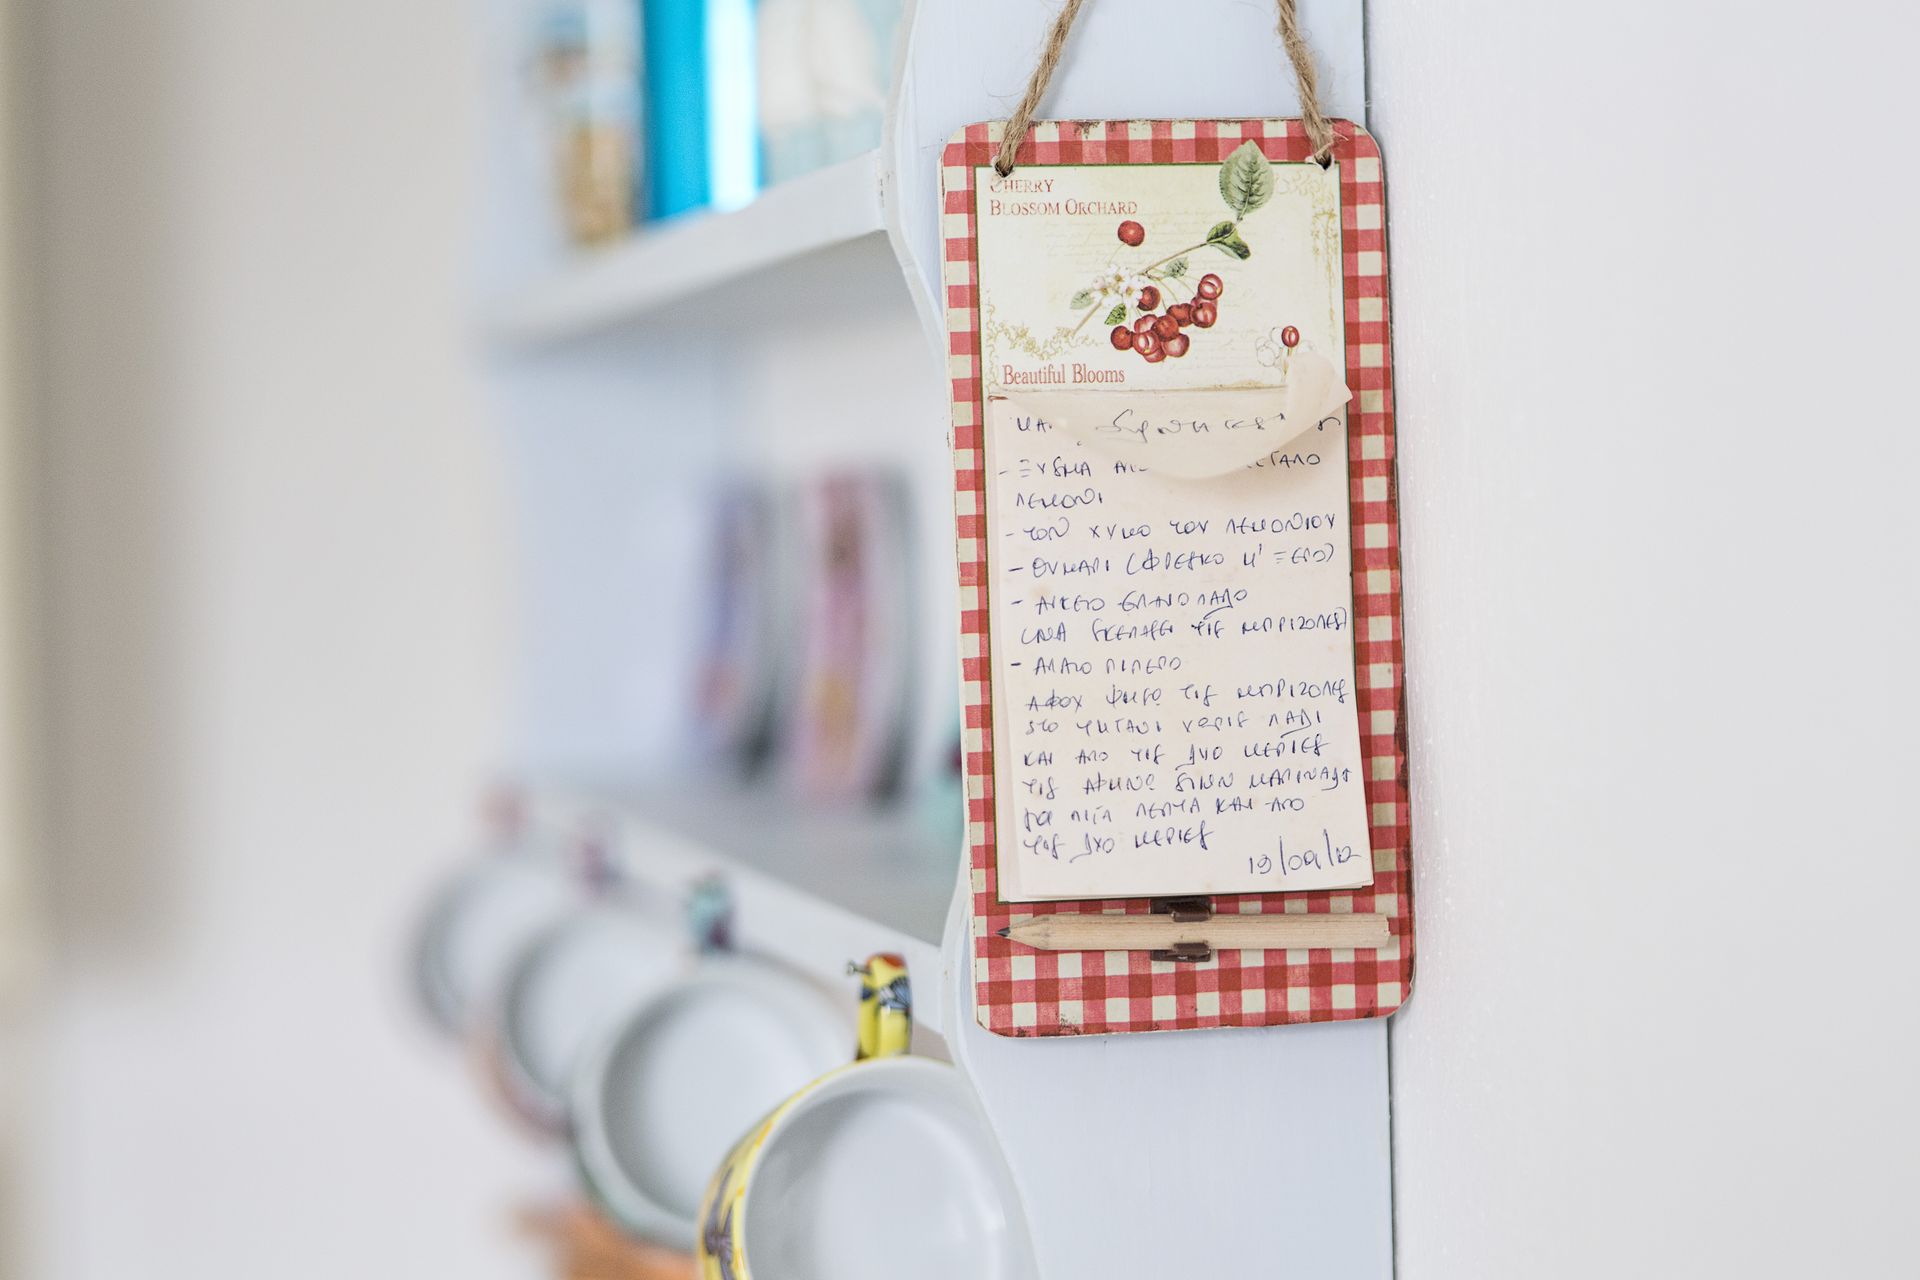 CHERRY
BLOSSOM ORCHARD
Beautiful Blooms
- ΞΥΣΜΑ ΑΠ
ΛΕΜΟΝΙ
- ΤΟΝ ΧΥΜΟ ΤΟΥ ΛΕΜΟΝΙΟΥ
- ΘΥΜΑΡΙ (ΦΡΕΣΚΟ Η' ΞΕΡΟ)
- ΑΡΚΕΤΟ ΕΛΑΙΟΛΑΔΟ
(ΝΑ ΣΚΕΠΑΣΕΙ ΤΙΣ ΜΠΡΙΖΟΛΕΣ)
- ΑΛΑΤΟ ΠΙΠΕΡΟ
ΑΦΟΥ ΨΗΣΩ ΤΙΣ ΜΠΡΙΖΟΛΕΣ
ΣΤΟ ΤΗΓΑΝΙ ΧΩΡΙΣ ΛΑΔΙ
ΚΑΙ ΑΠΟ ΤΙΣ ΔΥΟ ΜΕΡΙΕΣ
ΤΙΣ ΑΦΗΝΩ ΣΤΗΝ ΜΑΡΙΝΑΔΑ
ΓΙΑ ΛΕΠΤΑ ΚΑΙ ΑΠΟ
ΤΙΣ ΔΥΟ ΜΕΡΙΕΣ
19/09/12